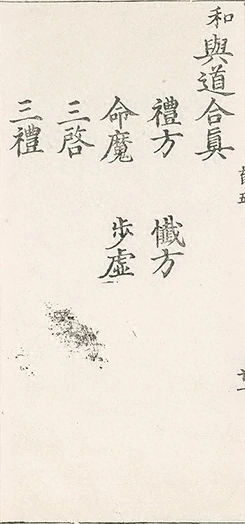 和
與道合眞
禮方　懺方
命魔　步虛
三啓
三禮